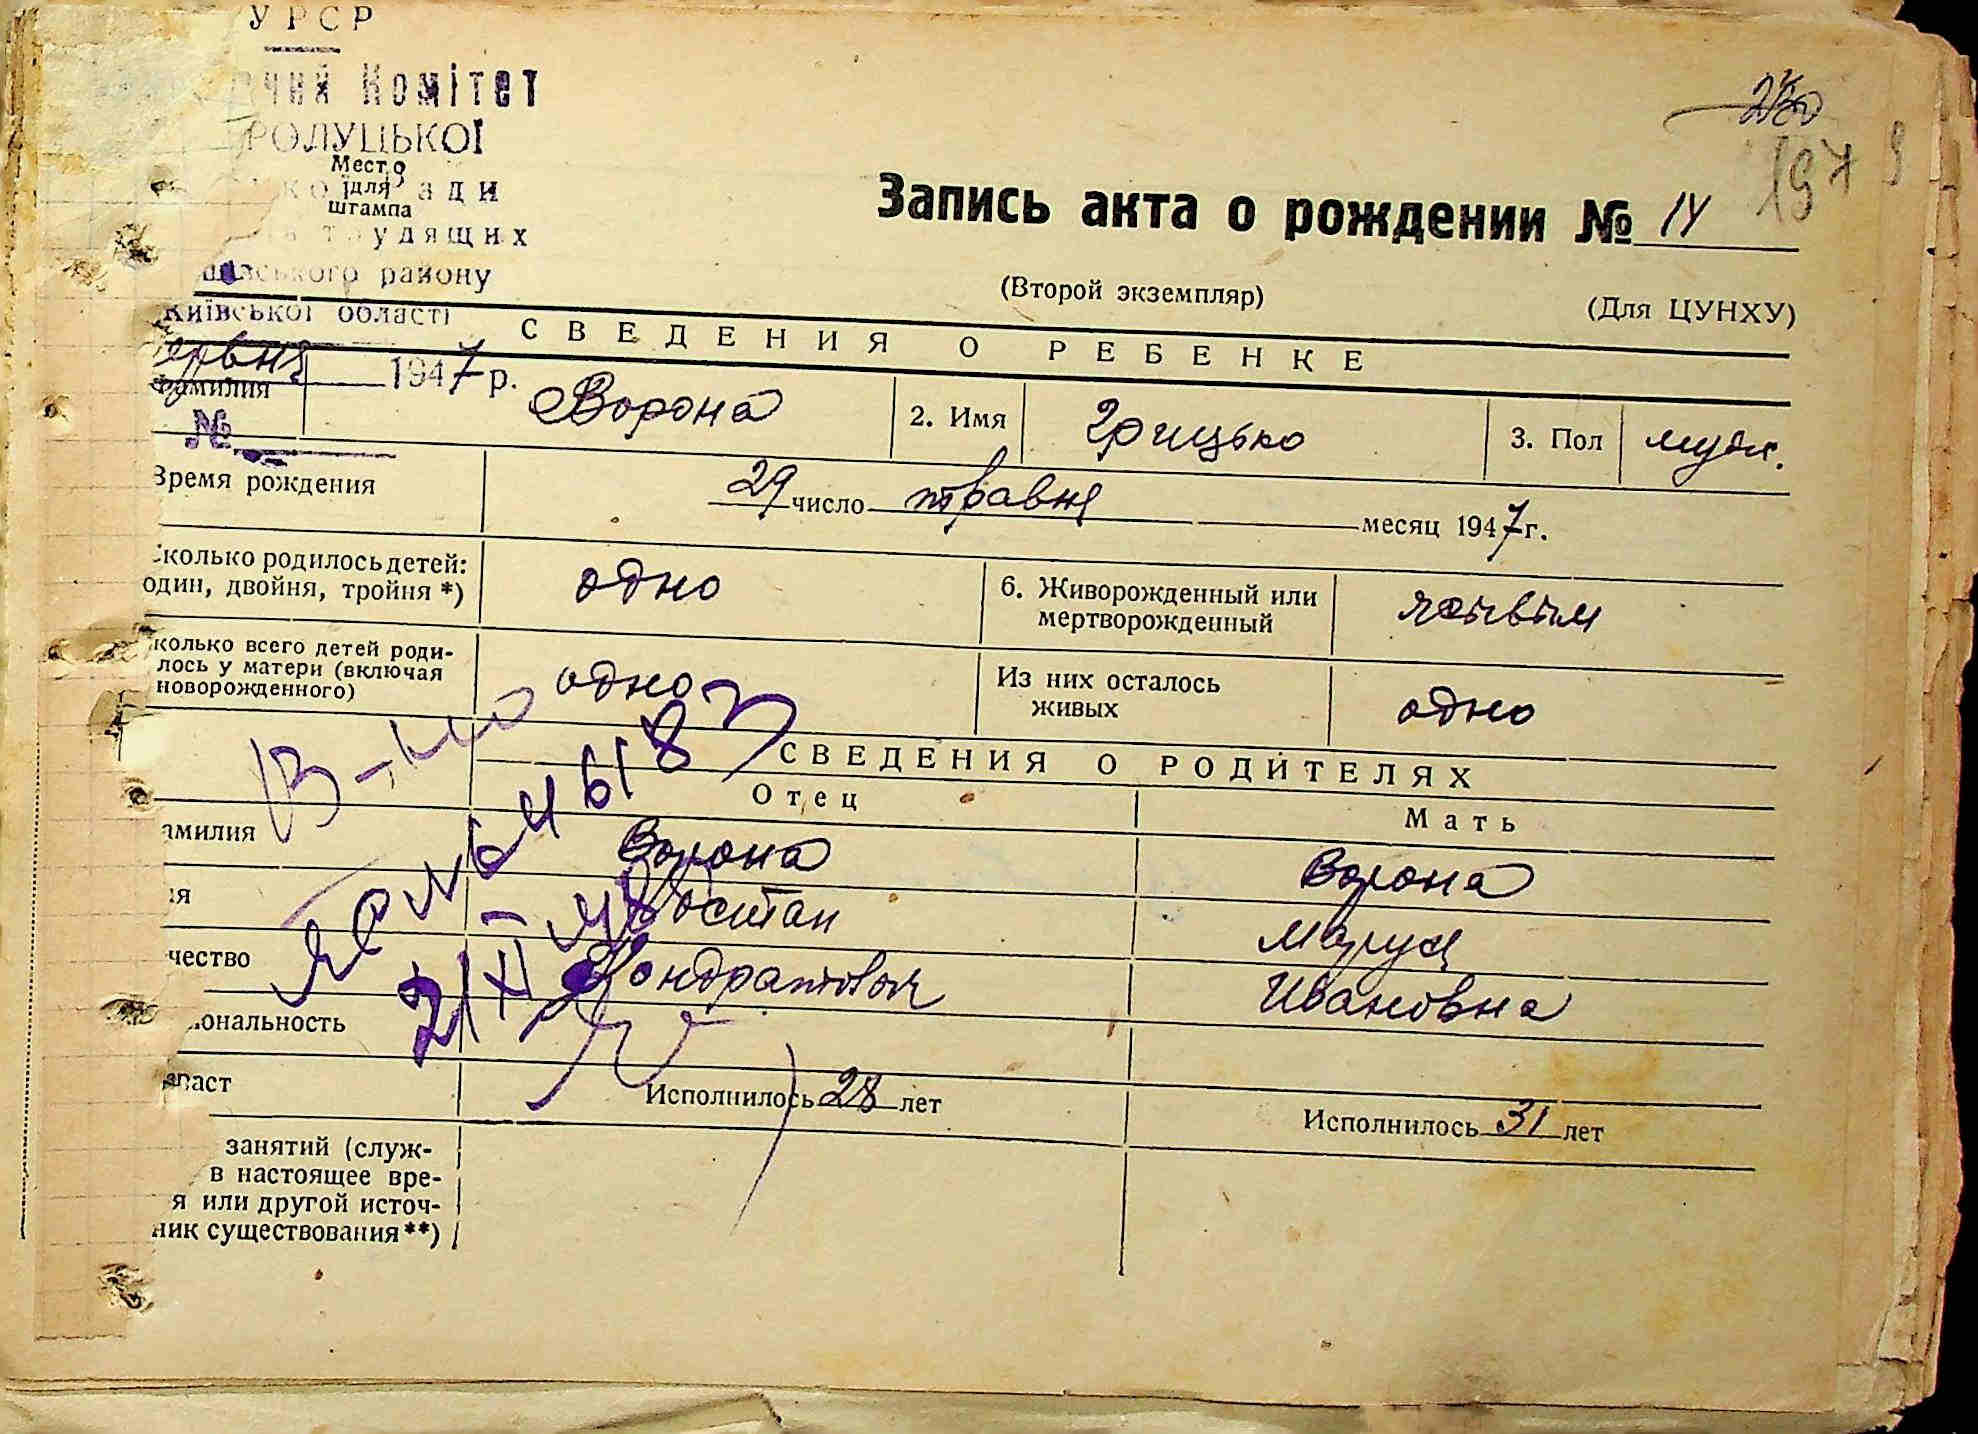 УРСР
Комітет
РОЛУЦЬКОЇ
Место
для
штампа
трудящих
району
Київської області
1947 р.
№
230
197
Запись акта о рождении № 14
(Второй экземпляр)
(Для ЦУНХУ)
СВЕДЕНИЯ О РЕБЕНКЕ
Фамилия Ворона 2. Имя Грицько 3. Пол муж.
Время рождения 29 число травня месяц 1947 г.
Сколько родилось детей:
один, двойня, тройня *) одно 6. Живорожденный или
мертворожденный живым
сколько всего детей роди-
лось у матери (включая
новорожденного) одно Из них осталось
живых одно
СВЕДЕНИЯ О РОДИТЕЛЯХ
Отец Мать
амилия Ворона Ворона
я Маруся
чество Кондратович Ивановна
иональность
зраст Исполнилось 28 лет Исполнилось 31 лет
занятий (служ-
в настоящее вре-
я или другой источ-
ник существования **)